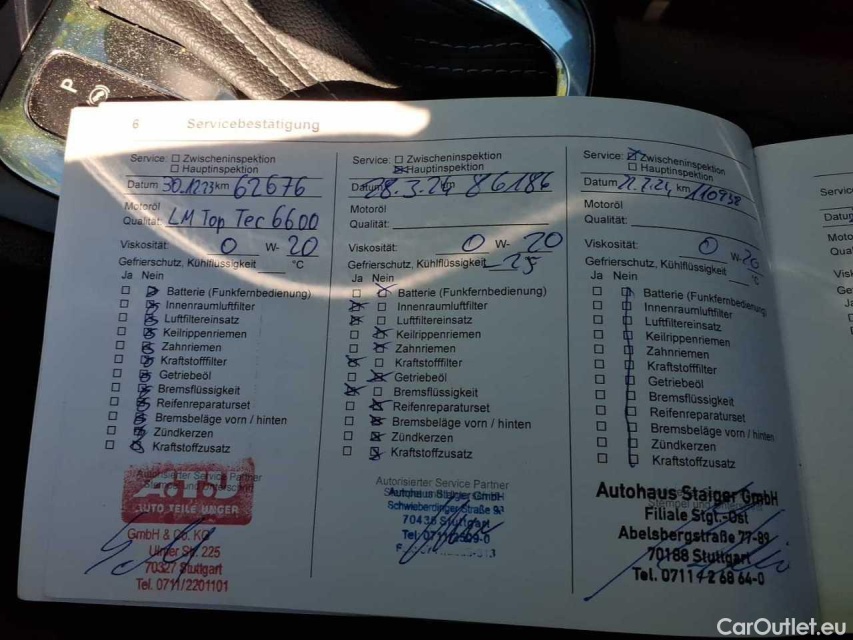 P
6 Servicebestätigung
Service: Zwischeninspektion
Hauptinspektion
Datum 30.12.23 km 62676
Motoröl
Qualität: LM Top Tec 6600
Viskosität: 0 W- 20
Gefrierschutz, Kühlflüssigkeit °C
Ja Nein
Batterie (Funkfernbedienung)
Innenraumluftfilter
Luftfiltereinsatz
Keilrippenriemen
Zahnriemen
Kraftstofffilter
Getriebeöl
Bremsflüssigkeit
Reifenreparaturset
Bremsbeläge vorn / hinten
Zündkerzen
Kraftstoffzusatz
Autorisierter Service Partner
AUTO TEILE UNGER
GmbH & Co. KG
Ulmer Str. 225
70327 Stuttgart
Tel. 0711/2201101
Service: Zwischeninspektion
Hauptinspektion
Datum 28.3.24 km 86186
Motoröl
Qualität:
Viskosität: 0 W- 20
Gefrierschutz, Kühlflüssigkeit -25
Ja Nein
Batterie (Funkfernbedienung)
Innenraumluftfilter
Luftfiltereinsatz
Keilrippenriemen
Zahnriemen
Kraftstofffilter
Getriebeöl
Bremsflüssigkeit
Reifenreparaturset
Bremsbeläge vorn / hinten
Zündkerzen
Kraftstoffzusatz
Autorisierter Service Partner
Autohaus Staiger GmbH
Schwieberdinger Straße 93
70435 Stuttgart
Service: Zwischeninspektion
Hauptinspektion
Datum km 110938
Motoröl
Qualität:
Viskosität: 0 W- 20
Gefrierschutz, Kühlflüssigkeit °C
Ja Nein
Batterie (Funkfernbedienung)
Innenraumluftfilter
Luftfiltereinsatz
Keilrippenriemen
Zahnriemen
Kraftstofffilter
Getriebeöl
Bremsflüssigkeit
Reifenreparaturset
Bremsbeläge vorn / hinten
Zündkerzen
Kraftstoffzusatz
Autohaus Staiger GmbH
Filiale Stgt.-Ost
Abelsbergstraße 77-89
70188 Stuttgart
Tel. 0711 4 2 68 64-0
CarOutlet.eu